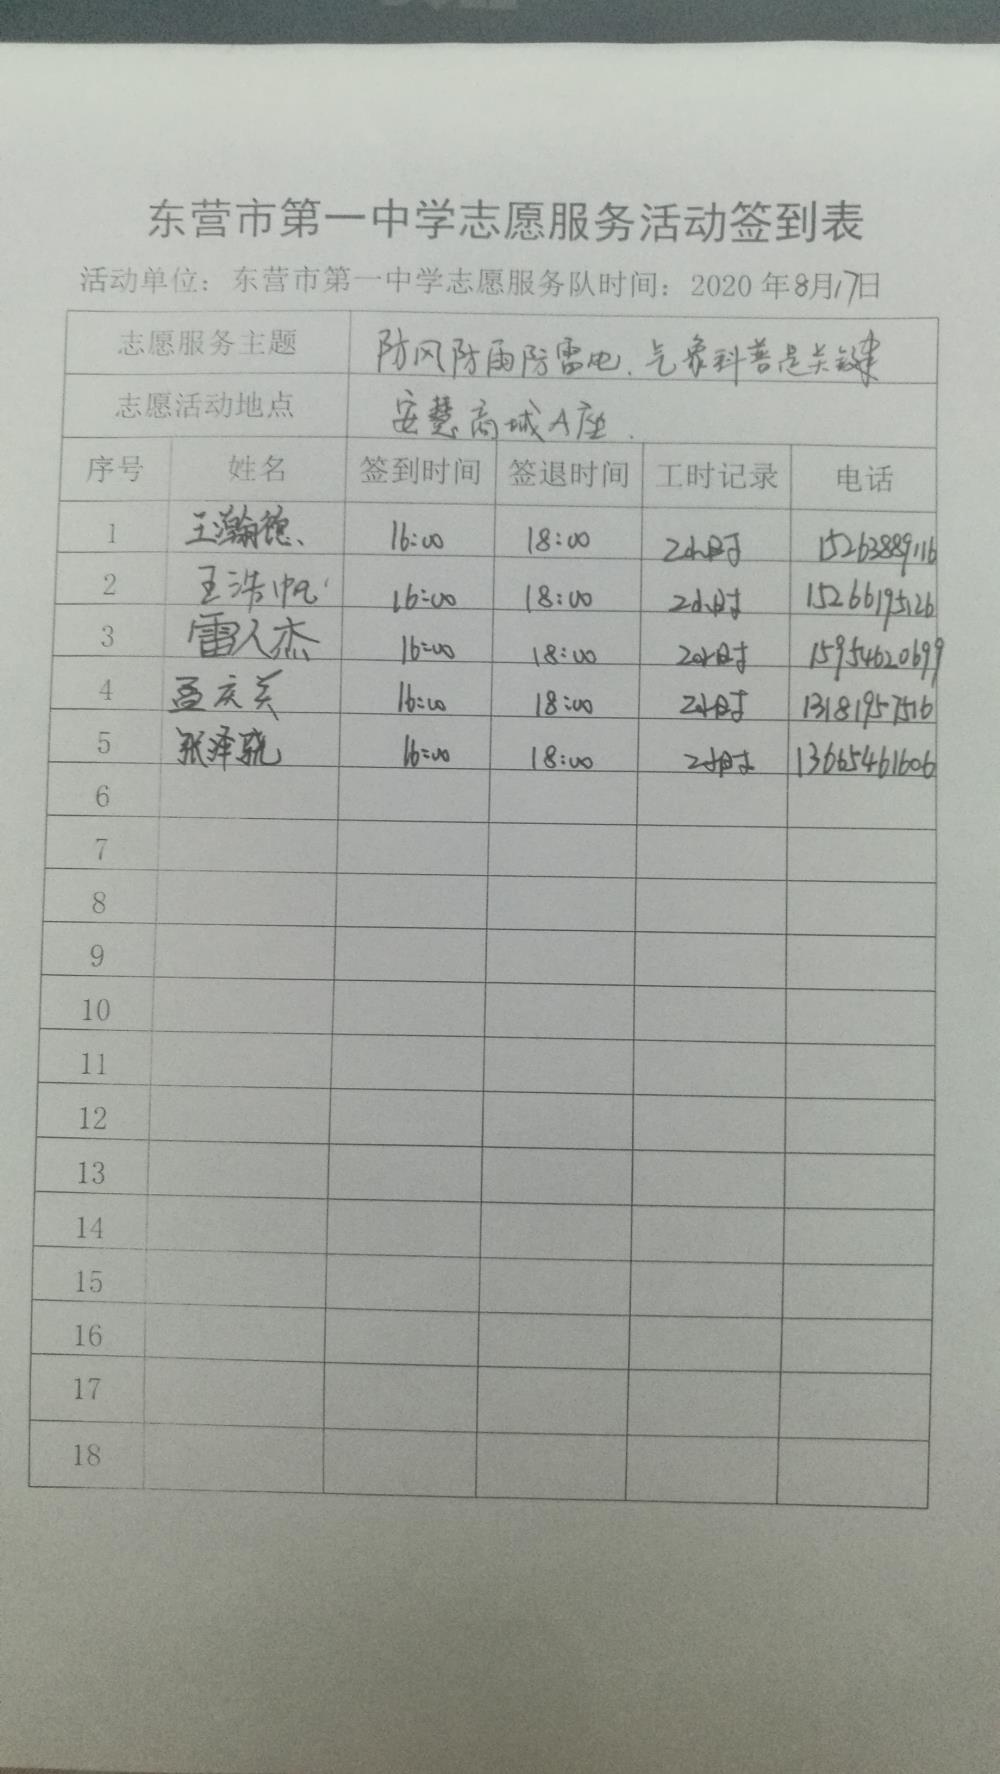 东营市第一中学志愿服务活动签到表
活动单位：东营市第一中学志愿服务队时间：2020年8月17日
志愿服务主题 防风防雨防雷电、气象科普是关键
志愿活动地点 安慧商城A座.
序号 姓名 签到时间 签退时间 工时记录 电话
1 王瀚德、 16:00 18:00 2小时 15263889116
2 王浩帆 16:00 18:00 2小时 15266195126
3 雷人杰 16:00 18:00 2小时 15954620699
4 孟庆 16:00 18:00 2小时 13181957516
5 张泽骁 16:00 18:00 2小时 13665461606
6
7
8
9
10
11
12
13
14
15
16
17
18